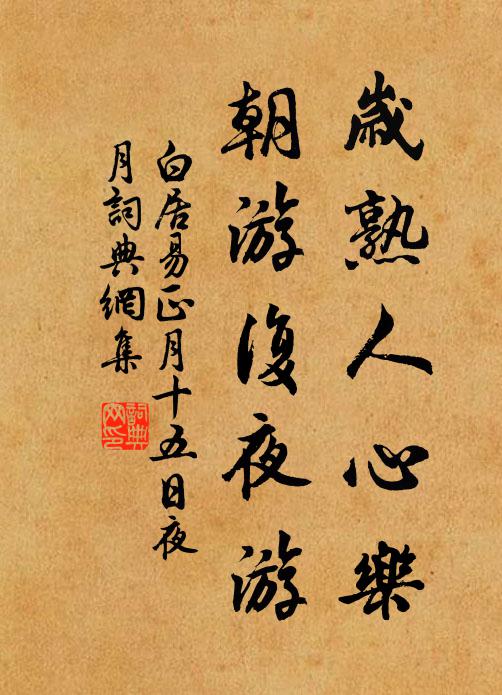 歲熟人心樂
朝游復夜游
白居易正月十五日夜
月詞典網集
詞典網印